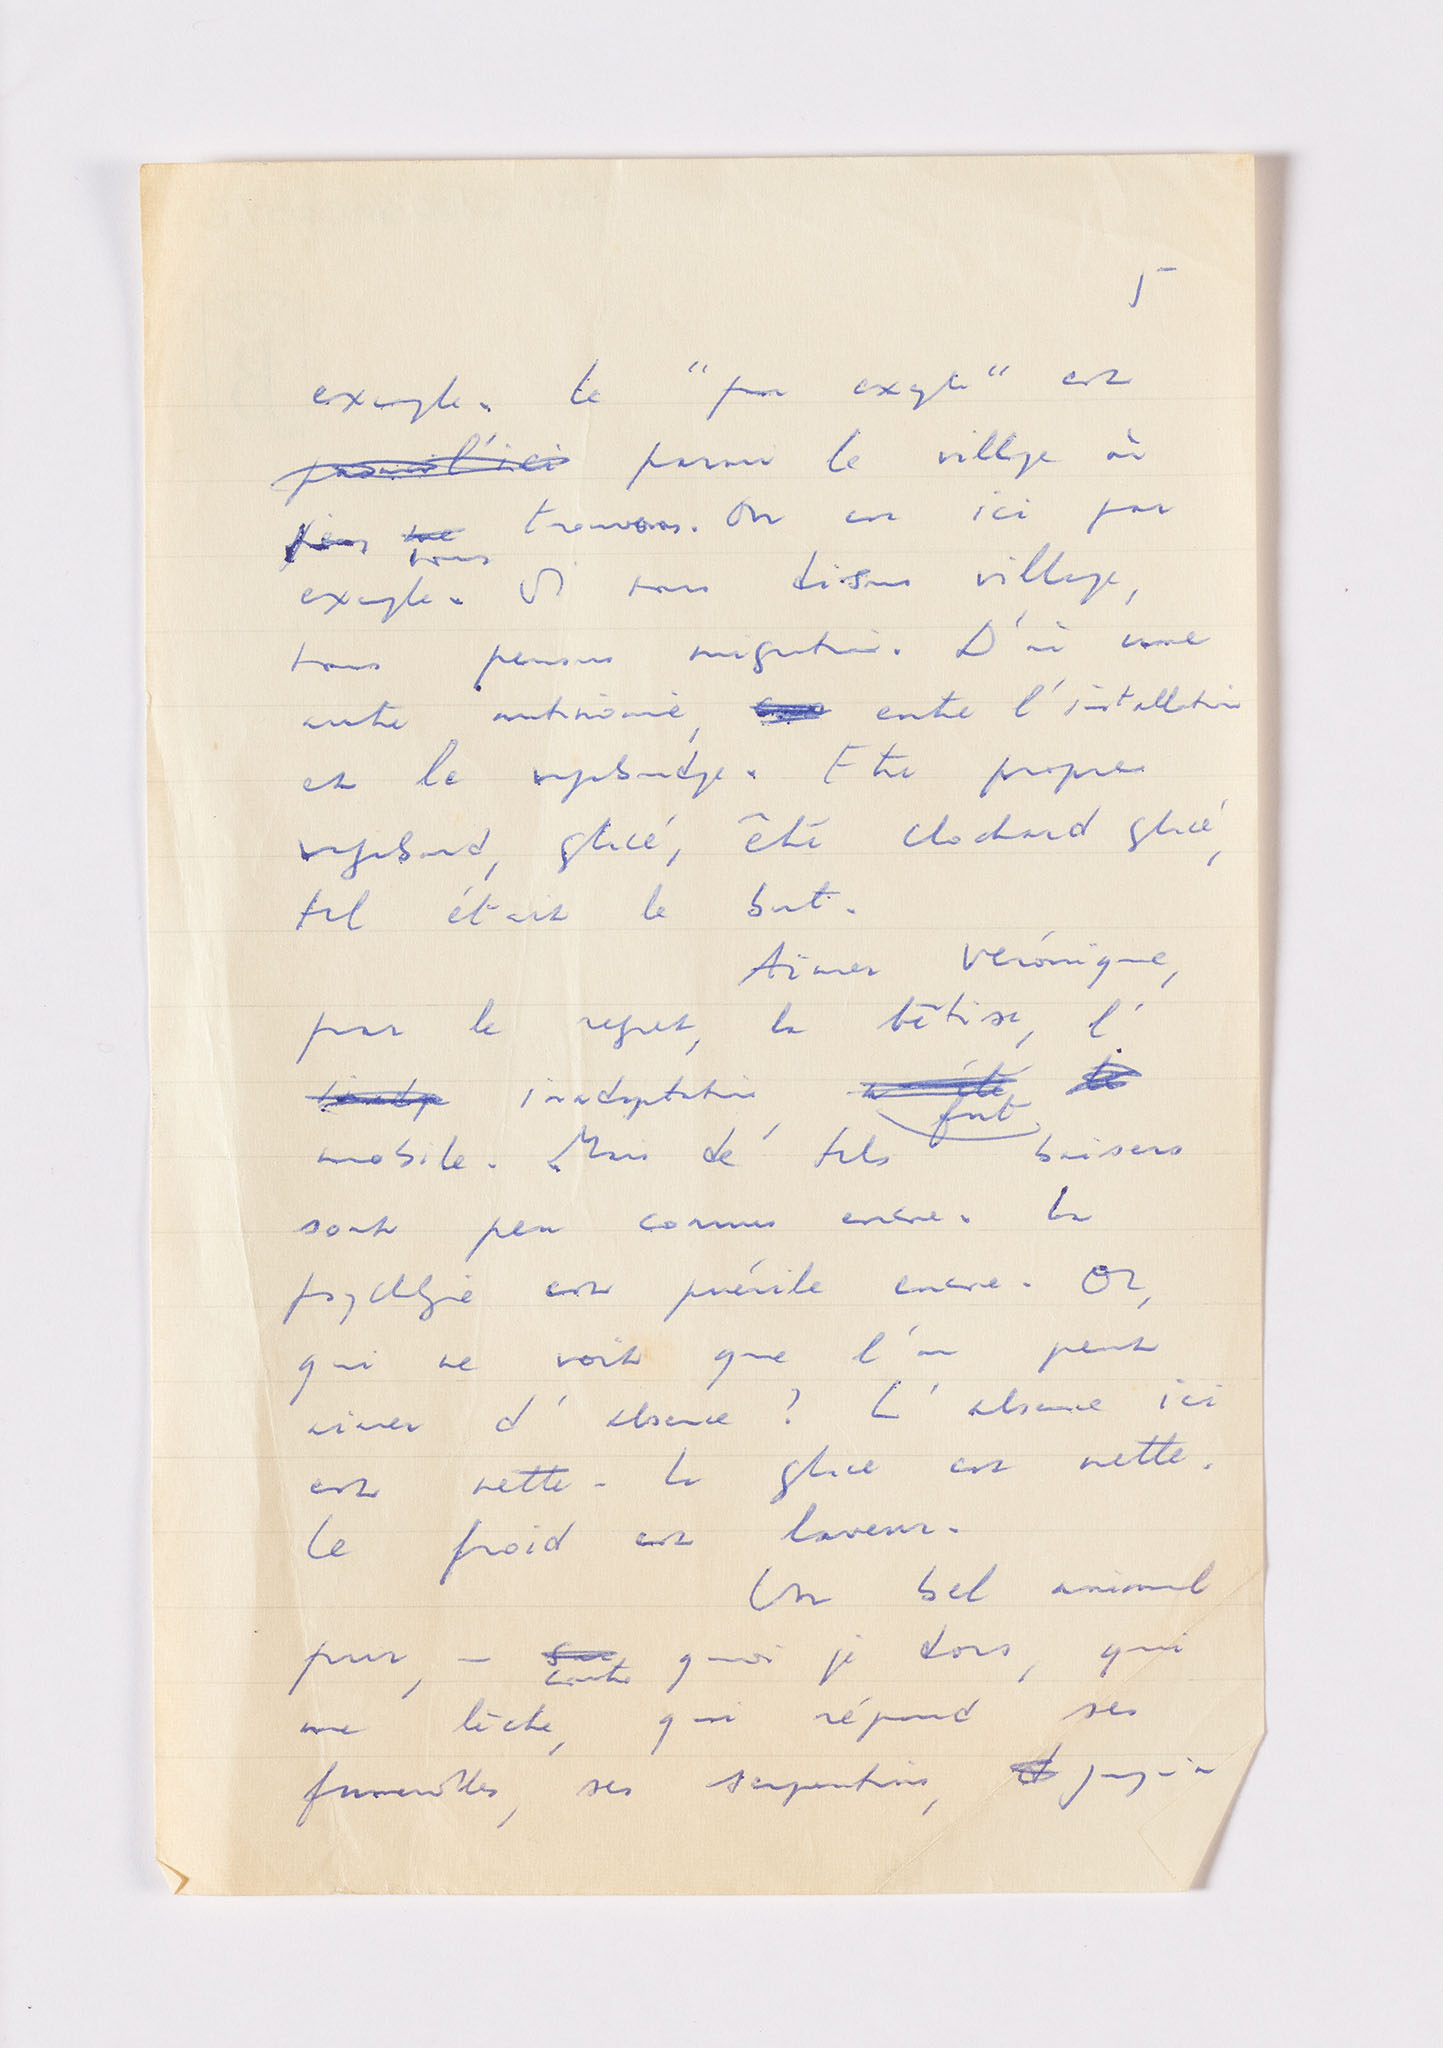 5
exemple. Le "par exemple" est
parmi le village où
nous trouvons. On est ici par
exemple. Si nous disons village,
nous pensons migration. D'où une
autre antinomie, entre l'installation
et le vagabondage. Etre propre
vagabond, glacé, être clochard glacé,
tel était le but.
Aimer Véronique,
pour le regret, la bêtise, l'
inadaptation,
fut
mobile. Mais de tels baisers
sont peu connus encore. La
psychologie est puérile encore. Or,
qui ne voit que l'on peut
aimer d'absence ? L'absence ici
est nette. La glace est nette.
Le froid est laveur.
Un bel animal
pur, – contre quoi je dors, qui
me lèche, qui répand ses
fumerolles, ses serpentins, jusqu'à